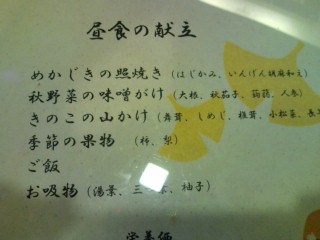 昼食の献立
めかじきの照焼き（はじかみ、いんげん胡麻和え）
秋野菜の味噌がけ（大根、秋茄子、蒟蒻、人参）
きのこの山かけ（舞茸、しめじ、椎茸、小松菜、長
季節の果物（柿、梨）
ご飯
お吸物（湯葉、三 、柚子）
栄養価